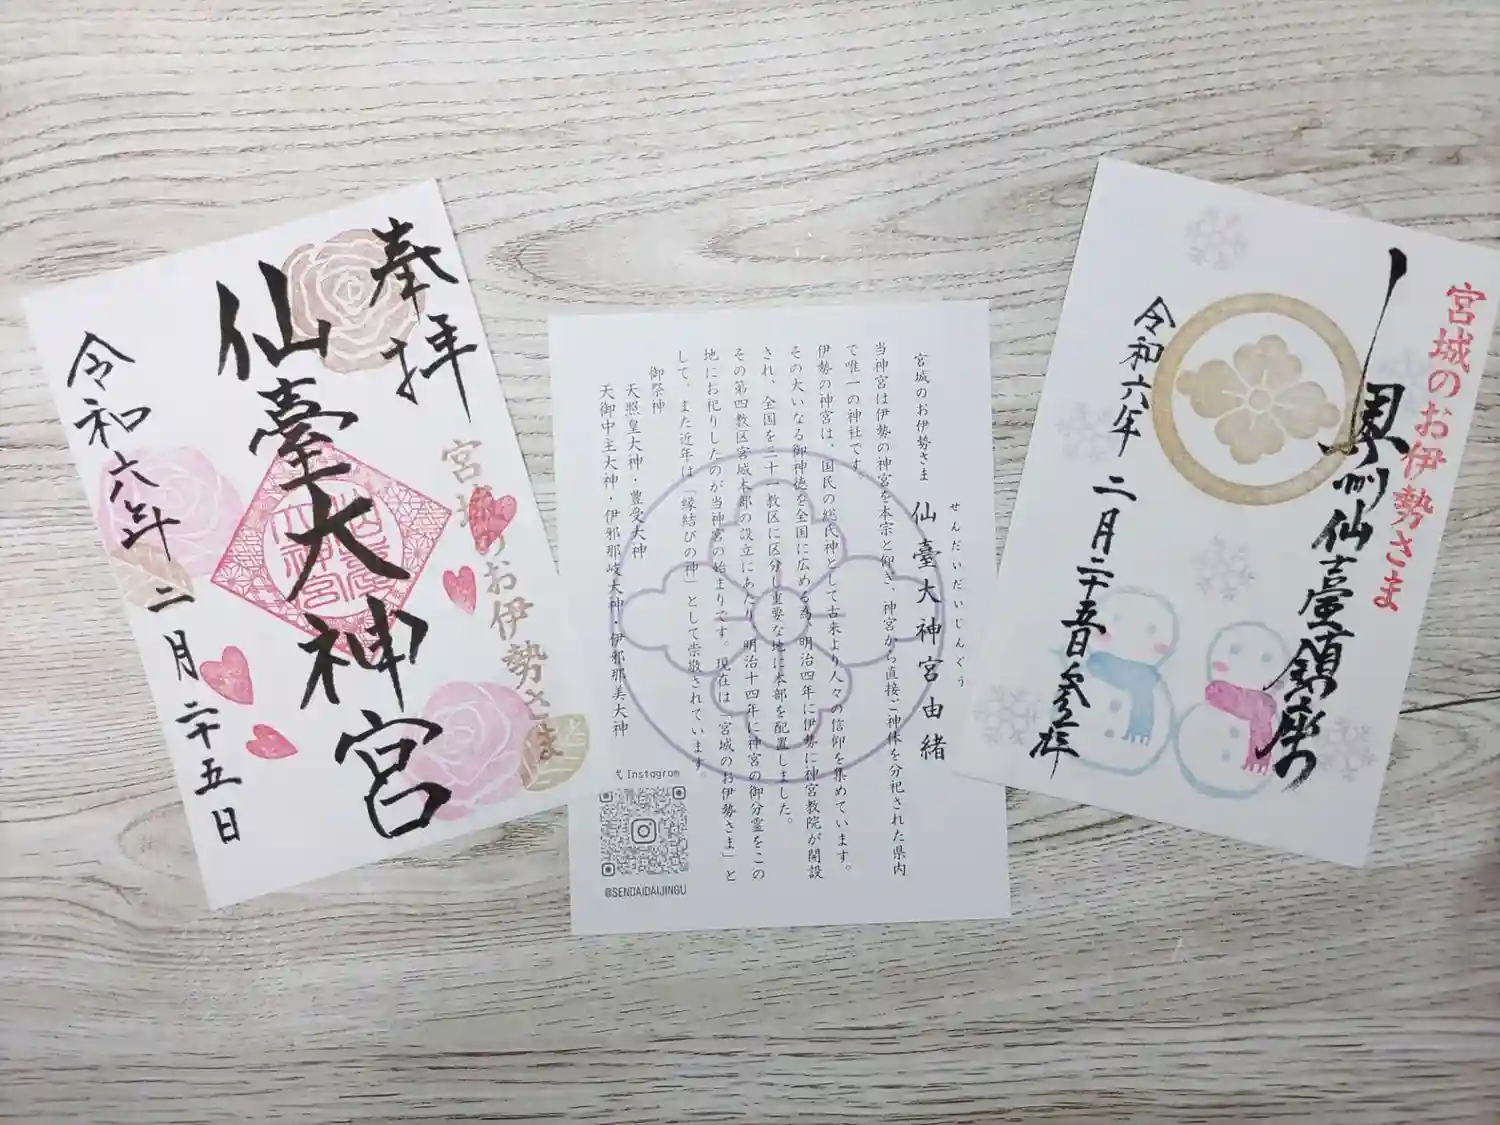 奉拝
仙臺大神宮
令和六年 二月二十五日
宮城のお伊勢さま
仙臺大神宮
宮城のお伊勢さま
せんだいだいじんぐう
仙臺大神宮由緒
当神宮は伊勢の神宮を本宗と仰ぎ、神宮から直接ご神体を分祀された県内
で唯一の神社です。
伊勢の神宮は、国民の総氏神として古来より人々の信仰を集めています。
その大いなる御神徳を全国に広める為、明治四年に伊勢に神宮教院が開設
され、全国を三十一教区に区分し重要な地に本部を配置しました。
その第四教区宮城本部の設立にあたり、明治十四年に神宮の御分霊をこの
地にお祀りしたのが当神宮の始まりです。現在は「宮城のお伊勢さま」と
して、また近年は「縁結びの神」として崇敬されています。
御祭神
天照皇大神・豊受大神
天御中主大神・伊邪那岐大神・伊邪那美大神
Instagram
@SENDAIDAIJINGU
宮城のお伊勢さま
奥州仙臺鎮座
令和六年 二月二十五日 参拝